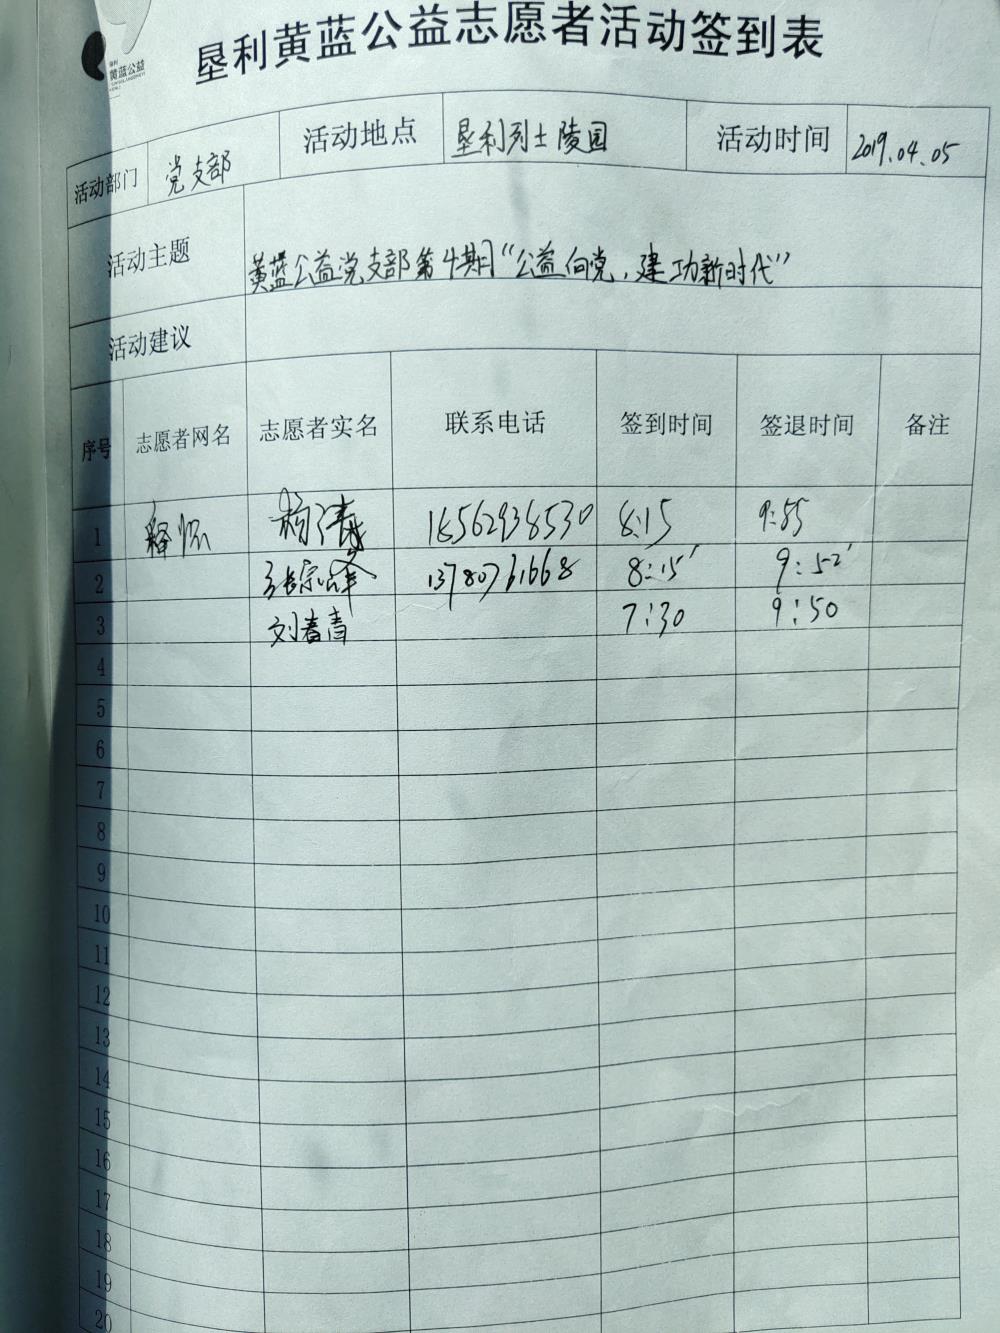 垦利黄蓝公益志愿者活动签到表
垦利
黄蓝公益
活动部门 党支部 活动地点 垦利烈士陵园 活动时间 2019.04.05
活动主题 黄蓝公益党支部第4期“公益向党，建功新时代”
活动建议
序号 志愿者网名 志愿者实名 联系电话 签到时间 签退时间 备注
1 18562938530 8:15 9:55
2 13780731668 8:15' 9:52'
3 刘春青 7:30 9:50
4
5
6
7
8
9
10
11
12
13
14
15
16
17
18
19
20